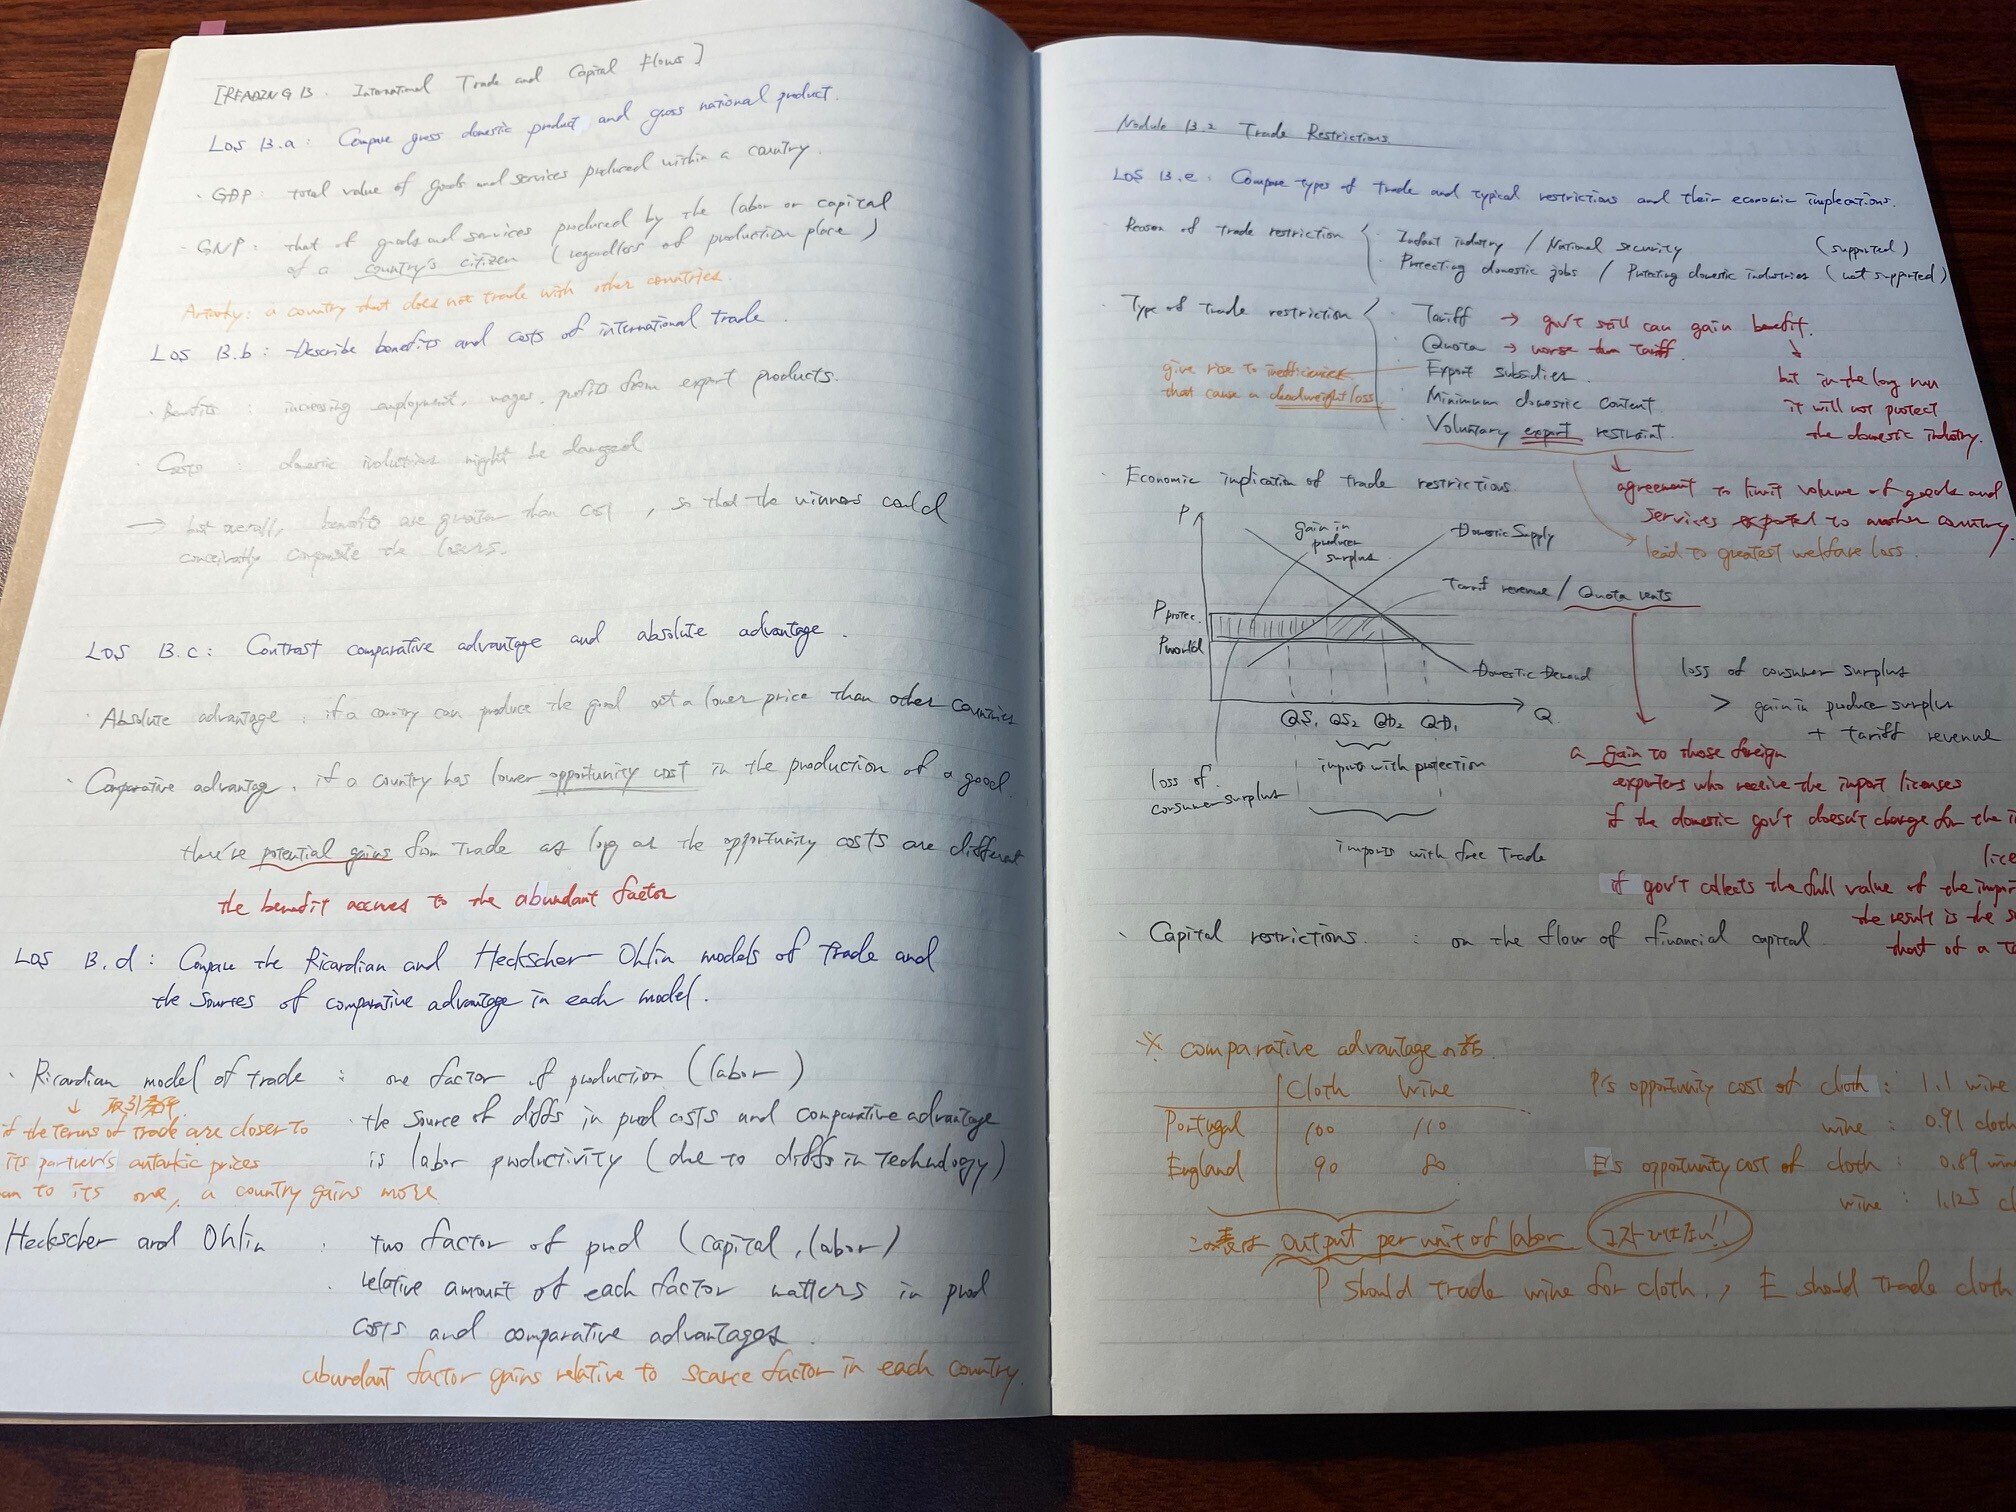 [READING 13. International Trade and Capital Flows]
LOS 13.a : Compare gross domestic product and gross national product.
· GDP : total value of goods and services produced within a country.
· GNP : that of goods and services produced by the labor or capital
of a country's citizen (regardless of production place)
Autarky : a country that does not trade with other countries.
LOS 13.b : Describe benefits and costs of international trade.
· Benefits : increasing employment, wages, profits from export products.
· Costs : domestic industries might be damged
→ but overall, benefits are greater than cost, so that the winners could
conceivably compensate the losers.
LOS 13.c : Contrast comparative advantage and absolute advantage.
· Absolute advantage : if a country can produce the good at a lower price than other countries
· Comparative advantage. if a country has lower opportunity cost in the production of a good.
there're potential gains from trade as long as the opportunity costs are different
the benefit accrues to the abundant factor
LOS 13.d : Compare the Ricardian and Heckscher Ohlin models of trade and
the sources of comparative advantage in each model.
· Ricardian model of trade : one factor of production (labor)
↓ 取引条件
if the terms of trade are closer to
its partner's autarkic prices
an to its one, a country gains more
· the source of diffs in prod costs and comparative advantage
is labor productivity (due to diffs in technology)
Heckscher and Ohlin : two factor of prod (capital, labor)
· relative amount of each factor matters in prod
costs and comparative advantages.
abundant factor gains relative to scarce factor in each country.
Module 13.2 Trade Restrictions
LOS 13.e : Compare types of trade and typical restrictions and their economic implications.
· Reason of trade restriction
· Infant industry / National security (supported)
· Protecting domestic jobs / Protecting domestic industries (not supported)
· Type of trade restriction
· Tariff → gov't still can gain benefit.
· Quota → worse than tariff.
· Export subsidies.
· Minimum domestic content.
· Voluntary export restraint.
give rise to inefficiencies
that cause a deadweight loss.
but in the long run
it will not protect
the domestic industry.
agreement to limit volume of goods and
services exported to another country.
→ lead to greatest welfare loss.
· Economic implication of trade restrictions.
P
gain in
producer
surplus
Domestic Supply
Tariff revenue / Quota rents
P protec.
P world
Domestic Demand
QS₁ QS₂ QD₂ QD₁ Q
imports with protection
imports with free trade
loss of
consumer surplus
loss of consumer surplus
> gain in produce surplus
+ tariff revenue
a gain to those foreign
exporters who receive the import licenses
if the domestic gov't doesn't charge for the i
lice
if gov't collects the full value of the impor
the result is the s
that of a ta
· Capital restrictions. : on the flow of financial capital
※ comparative advantage の
Cloth Wine
Portugal 100 110
England 90 80
P's opportunity cost of cloth : 1.1 wine
wine : 0.91 cloth
E's opportunity cost of cloth : 0.89 win
wine : 1.125 cl
この表は output per unit of labor コストではない!!
P should trade wine for cloth., E should trade cloth